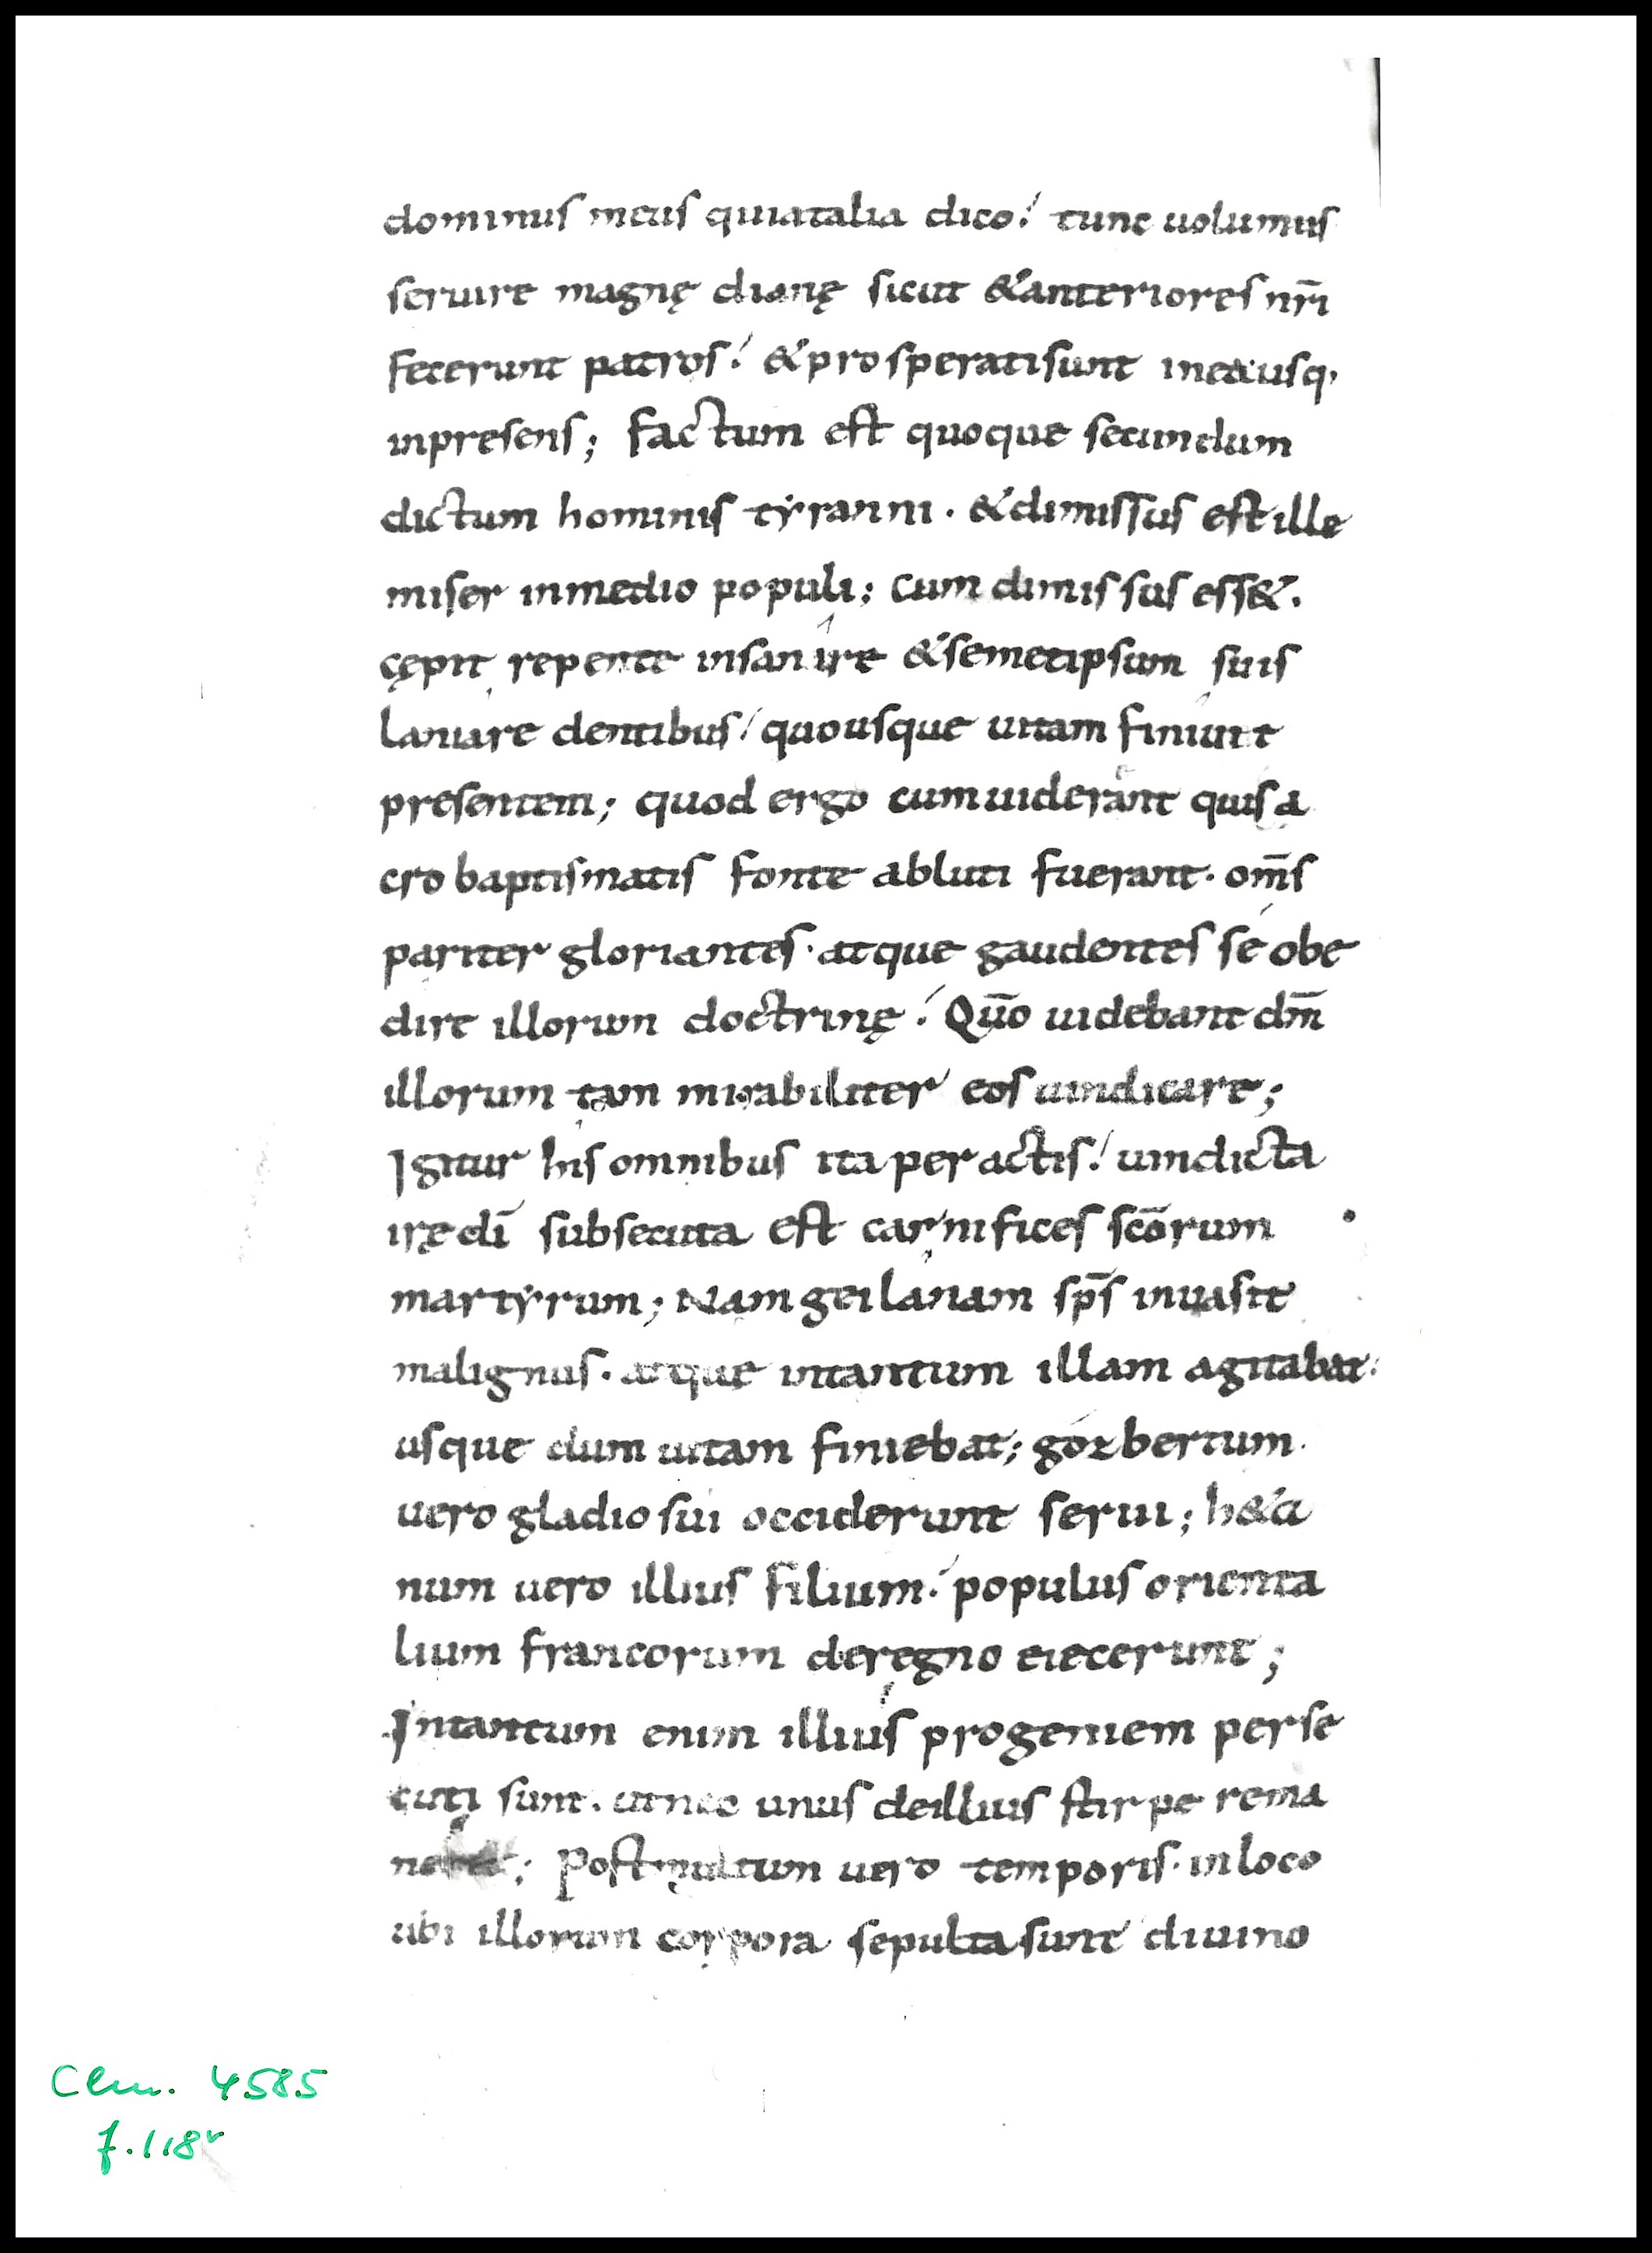 dominus meus quiatalia dico! tunc uolumus
seruire magnę dianę sicut &anteriores nr̄i
fecerunt patres! &prosperatisunt ineausq;
inpresens; factum est quoque secundum
dictum hominis tyranni. &dimissus est ille
miser inmedio populi; cum dimissus ess&.
cępit repente insanire &semetipsum suis
laniare dentibus! quousque uitam finiuit
presentem; quod ergo cumuiderant quisa
cro baptismatis fonte abluti fuerant. om̄s
pariter gloriantes. atque gaudentes sé obe
dire illorum doctrinę! Qūo uidebant dm̄
illorum tam mirabiliter eos uindicare;
Igitur his omnibus ita peractis! uindicta
irę dī subsecuta est carnifices scōrum
martyrum; Nam geilanam sp̄s inuasit
malignus. atque intantum illam agitabat.
usque dum uitam finiebat; gozbertum
uero gladio sui occiderunt serui; h&a
num uero illius filium! populus orienta
lium francorum deregno eiecerunt;
Intantum enim illius progeniem perse
cuti sunt. utnec unus deillius stirpe rema
Postmultum uero temporis. inloco
ubi illorum corpora sepulta sunt diuino
Clm. 4585
f. 118v